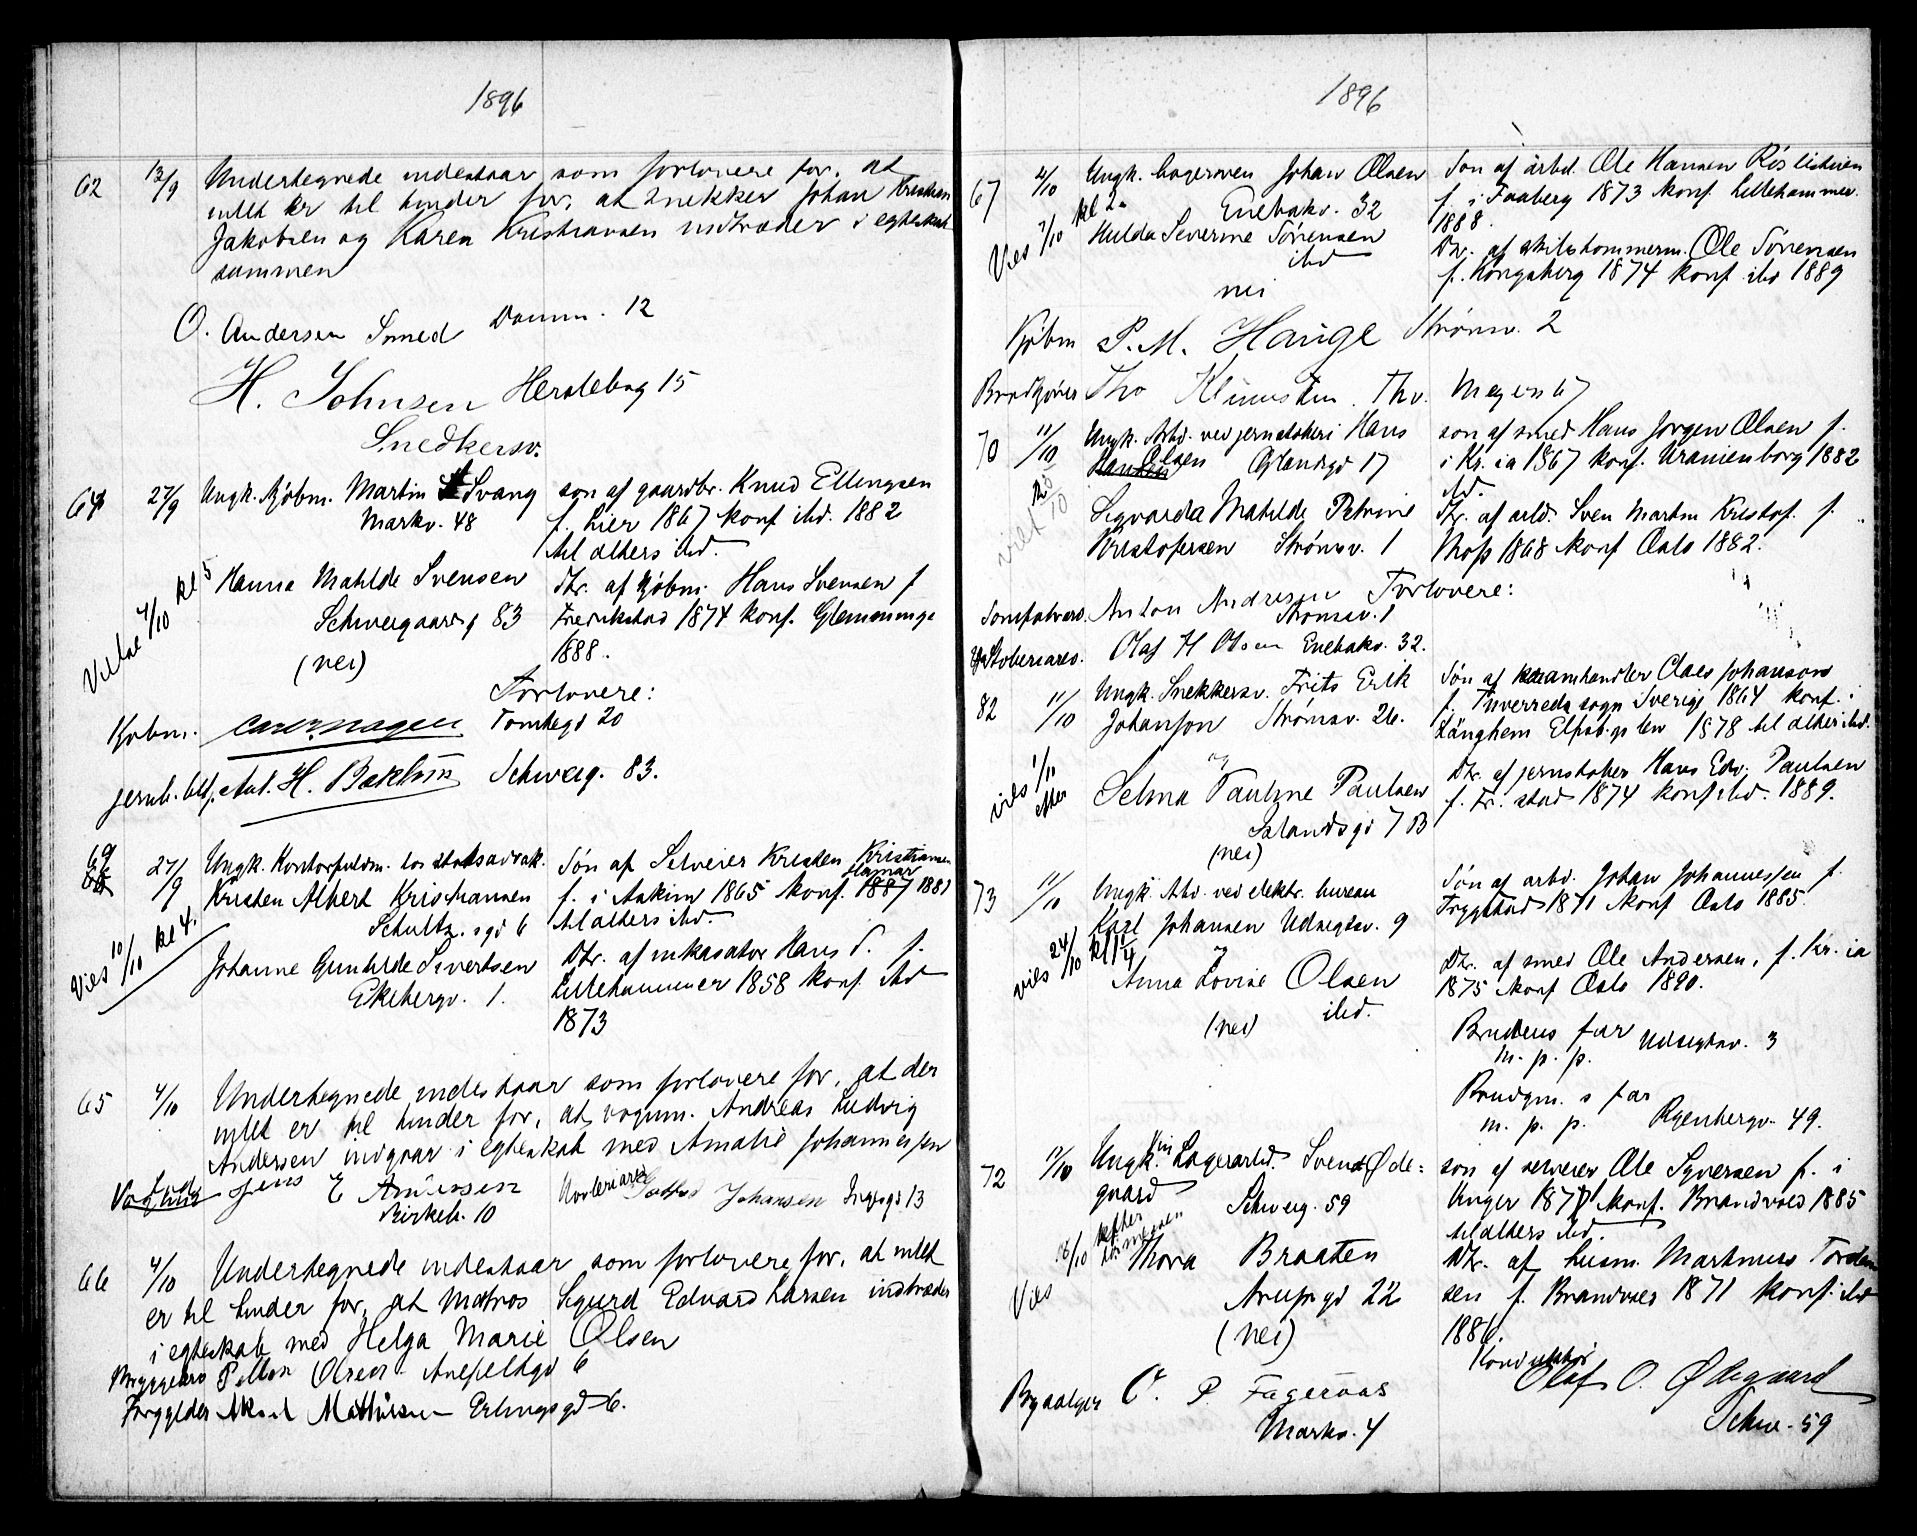 1896
62 13/9 Undertegnede indestaar som forlovere for, at
intet er til hinder for, at snekker Johan Kristian
Jakobsen og Karen Kristiansen indtræder i egteskab
sammen
O. Andersen Smed Damm. 12
H. Johnsen Herslebsg 15
Snedkersv.
64 27/9 Ungk. Kjøbm. Martin Svang søn af gaardbr. Knud Ellengsen
Markv. 48 f. Lier 1867 konf ibd. 1882
til alters ibd.
Vielse 4/10 kl 5
Hanna Matilde Svensen Dtr. af Kjøbm. Hans Svensen f
Schweigaardsg 83 Fredrikstad 1874 konf. Glemminge
(nei) 1888.
Forlovere:
Kjøbm. Tomtegd 20
jernb. btj. Ant. H. Schweig. 83.
69 27/9 Ungk. Kontorfuldm. hos statsadvok. Søn af Selveier Kristen Kristiansen
Kristen Albert Kristiansen f. i Askim 1865 konf. Hamar 1887 1881
Schultz. sgd 6 til alters ibd.
Vies 10/10 kl 4.
Johanne Gunhilde Sivertsen Dtr. af inkasator Hans S. f.
Ekebergv. 1. Lillehammer 1858 konf. ibd
1873
65 4/10 Undertegnede indestaar som forlovere for, at der
intet er til hinder for, at vognm. Andreas Ludvig
Andersen indgaar i egteskab med Amalie Johannessen
Jens E Andersen Johansen 13
Birkel. 10
66 4/10 Undertegnede indestaar som forlovere for, at intet
er til hinder for, at Matros Sigurd Edvard Larsen indtræder
i egteskab med Helga Marie Olsen
Bryggearb Olsen 6
Forgylder Mathisen Erlingsgd 6.
1896
67 4/10 Ungk. Johan Olsen Søn af arbd. Ole Hansen
Enebakv. 32 f. i Faaberg 1873 konf. Lillehammer
1888.
Vies 7/10 kl 2
Hulda Severine Sørensen Dtr. af skibstømmerm. Ole Sørensen
ibd f. Kongsberg 1874 konf ibd 1889
nei
Kjøbm P. M. Hauge Strømsv. 2
Tho Thv. Meyers 67
70 11/10 Ungk. Arbd. ved jernstøberi Hans søn af smed Hans Jørgen Olsen f.
Olsen Ølandsgd 17 i Kr. ia 1867 konf. Uranienborg 1882
ibd.
viet 10
Sigvarda Matilde Petrine Dtr. af arbd. Sven Martin Kristof. f.
Kristofersen Strømsv. 1 Moss 1868 konf Oslo 1882.
Forlovere:
Anton Andresen Strømsv. 1
Olaf H Olsen Enebakv. 32.
82 11/10 Ungk. Snekkersv. Frits Erik Søn af kramhandler Claes Johanson
Johanson Strømsv. 26. f. Tuverreda sogn Sverige 1864 konf. i
Länghem Elfsb. gs len 1878 til alters ibd.
vies 1/11 efter
og
Selma Pauline Paulsen Dtr. af jernstøber Hans Edv. Paulsen
Islandsgd 7 B f. Fr. stad 1874 konf ibd. 1889.
(nei)
73 11/10 Ungk. Arbd. ved elektr. bureau Søn af arbd. Johan Johannessen f.
Karl Johansen Udsigtsv. 9 Trygstad 1871 konf Oslo 1885.
vies 24/10 kl 1 1/4
og
Anna Lovise Olsen Dtr. af smed Ole Andersen, f. Kr. ia
ibd. 1875 konf Oslo 1890.
(nei)
Brudens far Udsigtsv. 3
m. p. p.
Brudgm. s far
m. p. p. Ryenbergv. 49.
72 11/10 Ungk. Lagerarbd. Svend Øde- søn af selveier Ole Syversen f. i
gaard Schweig. 59 Vinger 1871 konf. Brandvold 1885
til alters ibd.
Vies 18/10 efter
Thora Braaten Dtr. af husm. Martinus Torden
Arupsgd 22 sen f. Brandvold 1871 konf. ibd
(nei) 1886.
Konduktør
Olaf O. Ødegaard
Schw. 59
O. P. Fagernaas
Markv. 4